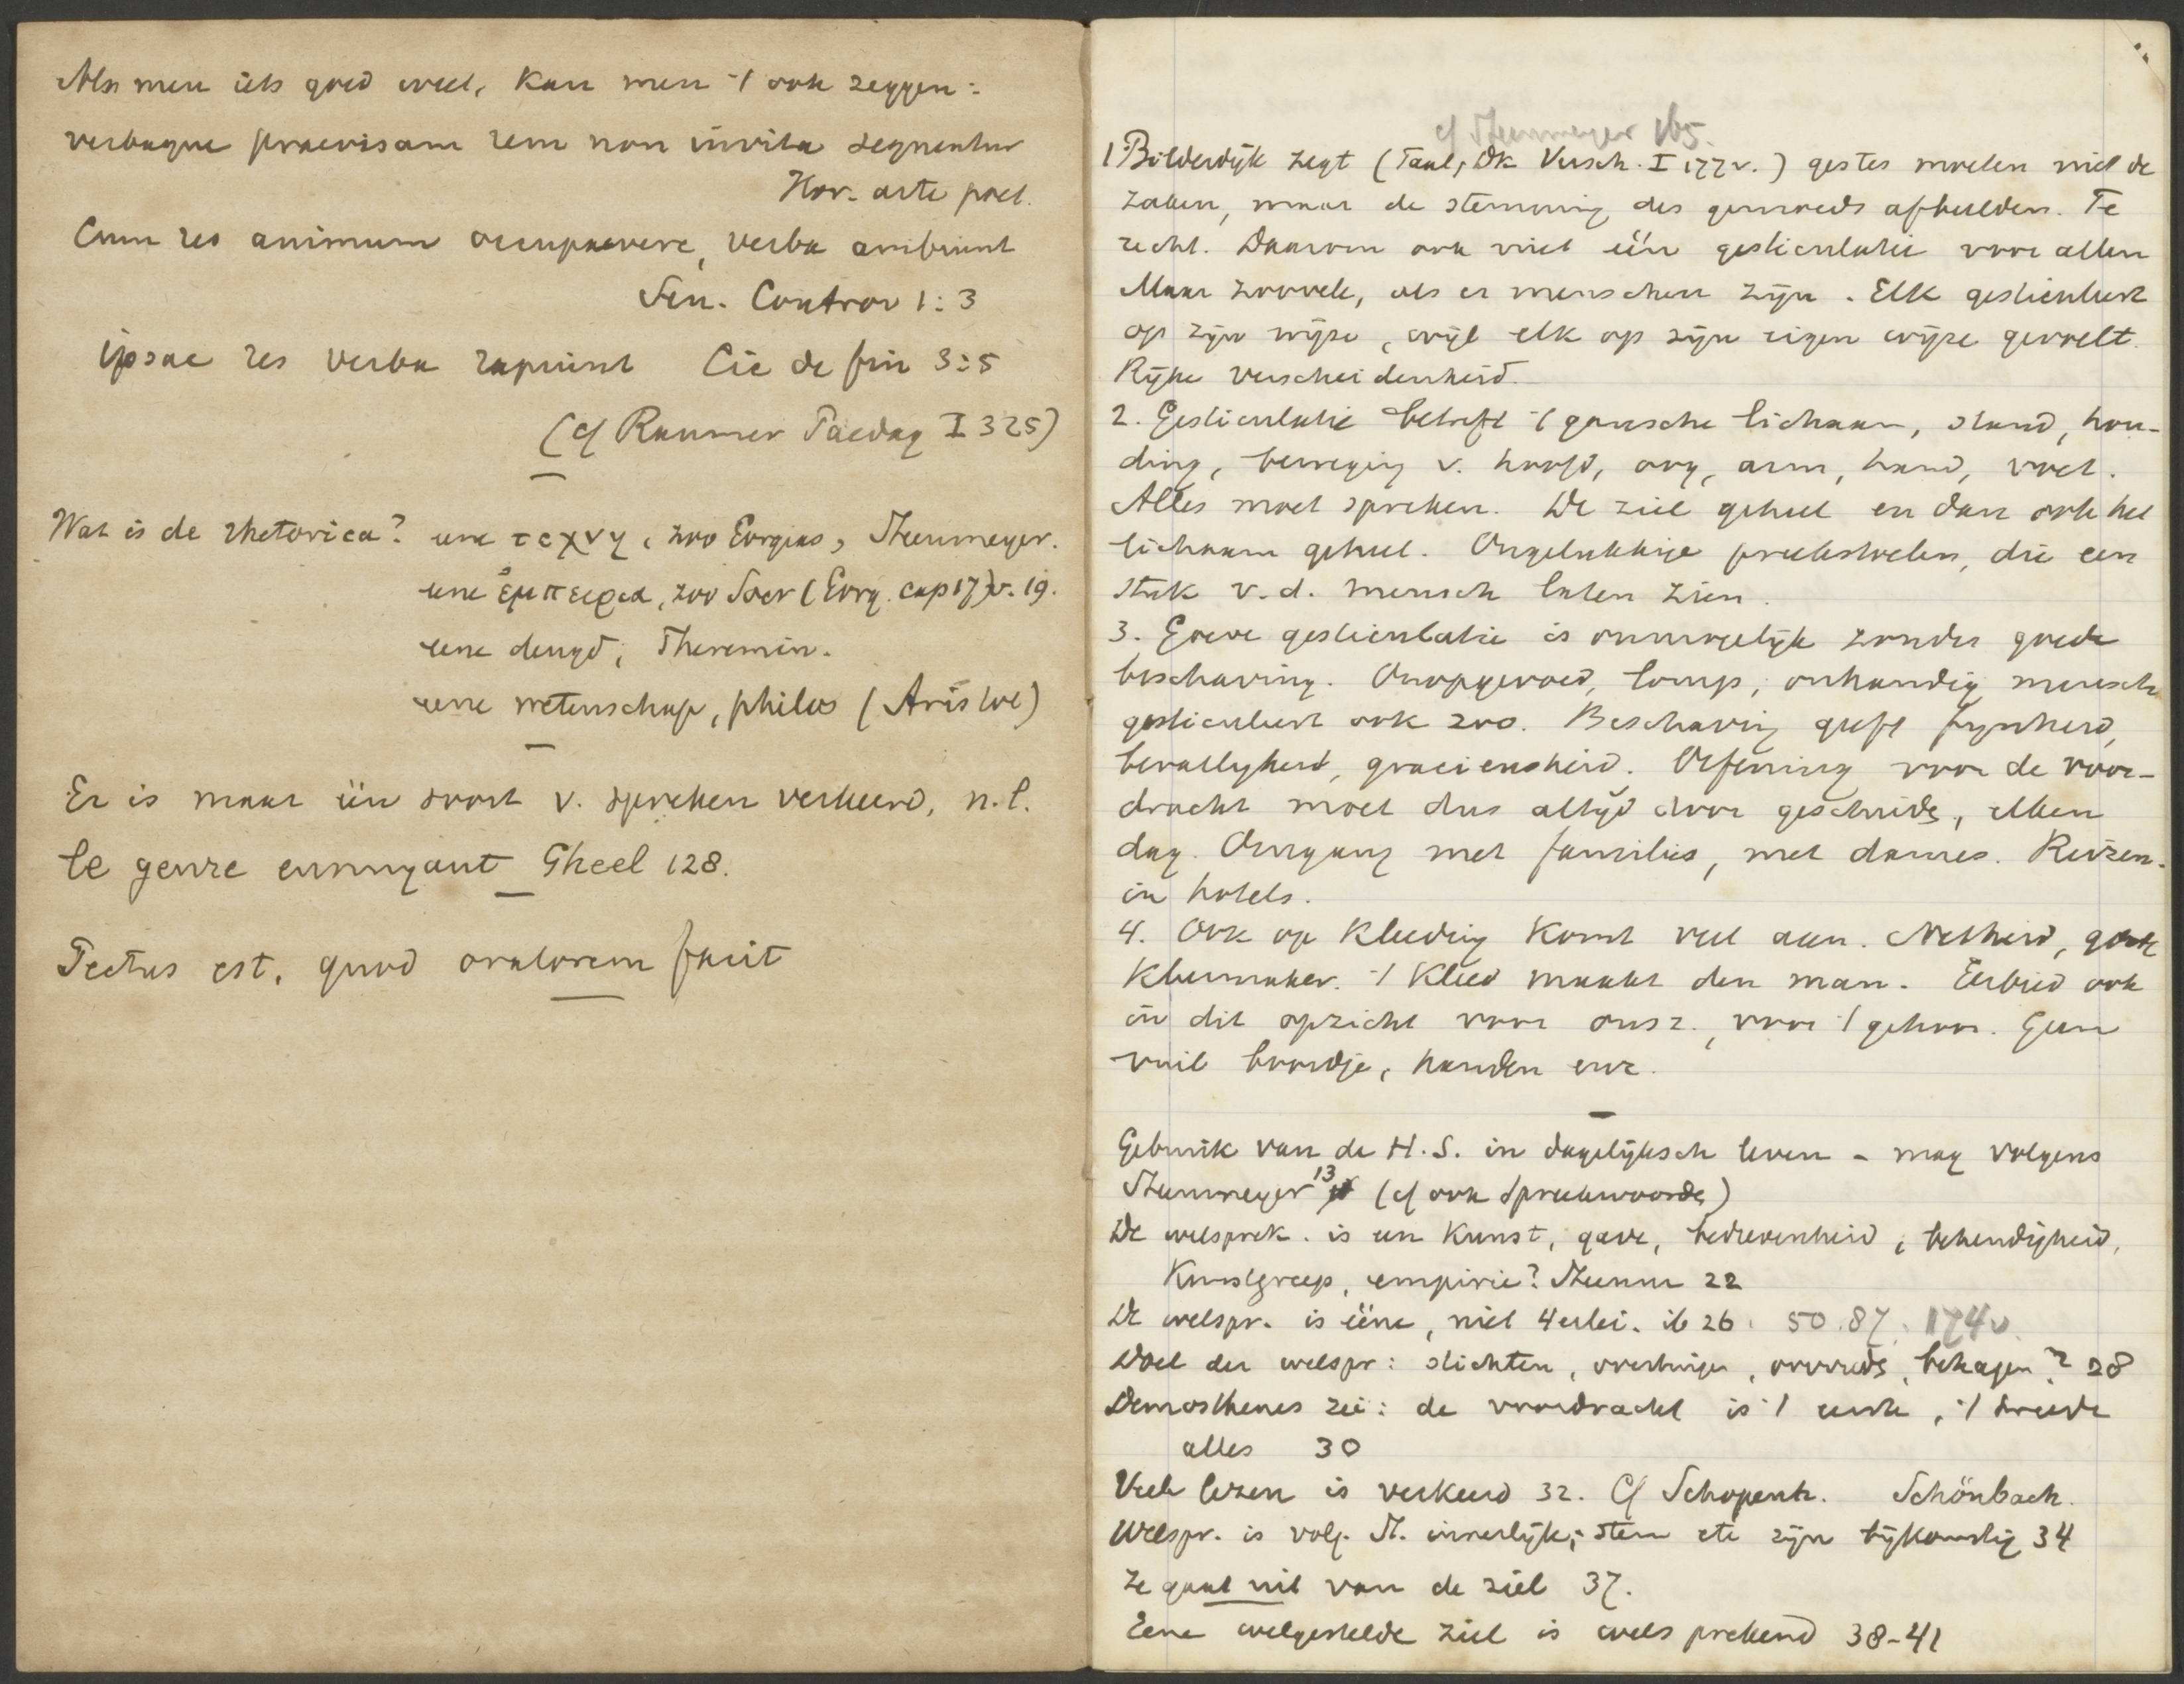 Als men iets goed weet, kan men 't ook zeggen:
verbaque praevisam rem non invita sequentur
Hor. arte poet.
Cum res animum occupavere, verba ambiunt
Sen. Controv 1:3
ipsae res verba rapiunt Cic de fin 3:5
(cf Raumer Paedag I 325)
Wat is de rhetorica? eene τεχνη, zoo Gorgias, Steinmeyer.
eene ἐμπειρια, zoo Socr (Gorg. cap 17) v. 19.
eene deugd, Theremin.
eene wetenschap, philos (Aristot)
Er is maar één soort v. spreken verkeerd, n.l.
le genre ennuyant Gheel 128.
Pectus est, quod oratorem facit
cf Steinmeyer 165.
1 Bilderdijk zegt (Taal, Dk Versch. I 177 v.) gestes moeten niet de
zaken, maar de stemming des gemoeds afbeelden. Te
recht. Daarom ook niet één gesticulatie voor allen
Maar zoovele, als er menschen zijn. Elk gesticuleert
op zijn wijze, wijl elk op zijn eigen wijze gevoelt.
Rijke verscheidenheid.
2. Gesticulatie betreft 't gansche lichaam, stand, hou-
ding, beweging v. hoofd, oog, arm, hand, voet.
Alles moet spreken. De ziel geheel en dan ook het
lichaam geheel. Ongelukkige preekstoelen, die een
stuk v.d. mensch laten zien.
3. Goede gesticulatie is onmogelijk zonder goede
beschaving. Onopgevoed, lomp, onhandig mensch
gesticuleert ook zoo. Beschaving geeft fijnheid,
bevallijkheid, gracieusheid. Oefening voor de voor-
dracht moet dus altijd door geschieden, elken
dag. Omgang met families, met dames. Reizen.
in hotels.
4. Ook op kleeding komt veel aan. Netheid, goede
kleermaker. 't Kleed maakt den man. Eerbied ook
in dit opzicht voor onsz., voor 't gehoor. Geen
vuil boordje, handen enz.
Gebruik van de H.S. in dagelijksch leven - mag volgens
Steinmeyer 13 (cf ook Spreekwoorden)
De welsprek. is een kunst, gave, bedrevenheid, behendigheid,
Kunstgreep, empirie? Steinm 22
De welspr. is ééne, niet 4erlei. ib 26. 50. 87. 174v.
Doel der welspr: stichten, overtuigen, overreden, behagen? 28
Demosthenes zei: de voordracht is 't eerste, 't tweede
alles 30
Veele lezen is verkeerd 32. Cf Schopenh. Schönbach.
Welspr. is volg. St. innerlijk; stem etc zijn bijkomstig 34
Ze gaat uit van de ziel 37.
Eene welgestelde ziel is welsprekend 38-41